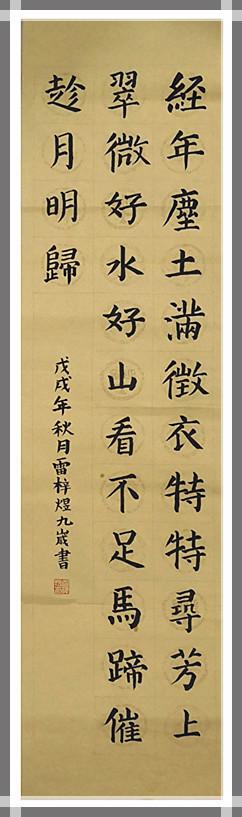 經年塵土滿徵衣特特尋芳上
翠微好水好山看不足馬蹄催
趁月明歸
戊戌年秋月雷梓煜九歲書